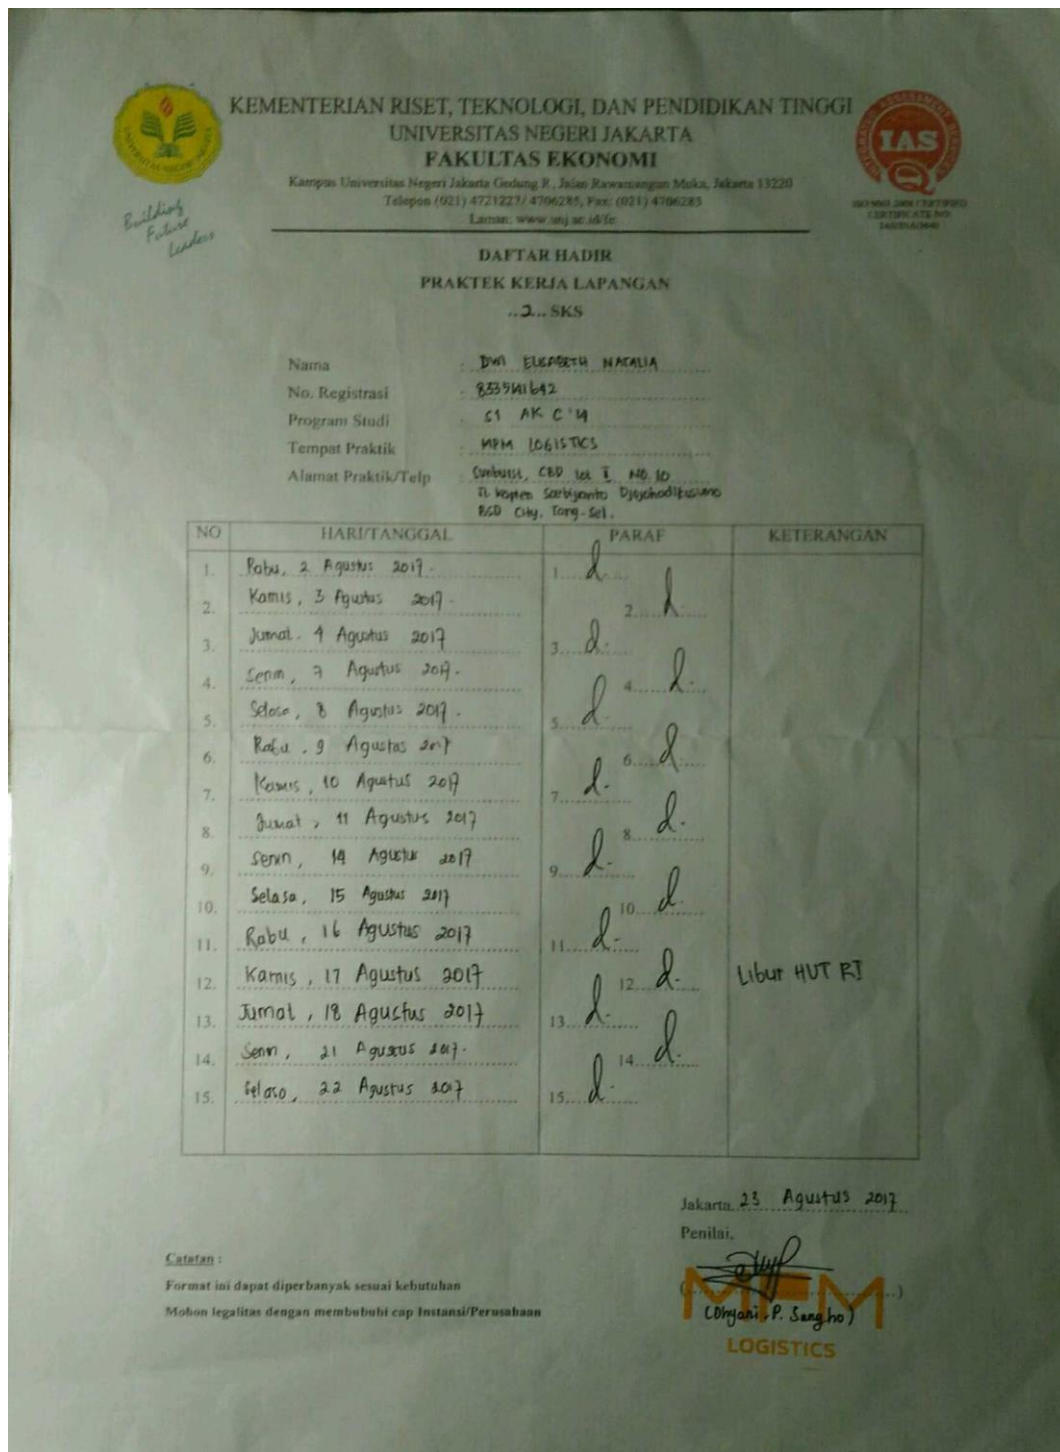 KEMENTERIAN RISET, TEKNOLOGI, DAN PENDIDIKAN TINGGI
UNIVERSITAS NEGERI JAKARTA
FAKULTAS EKONOMI
Kampus Universitas Negeri Jakarta Gedung R, Jalan Rawamangun Muka, Jakarta 13220
Telepon (021) 4721227/ 4706285, Fax: (021) 4706285
Laman: www.unj.ac.id/fe
Building
Future
Leaders
IAS
ISO 9001:2008 CERTIFIED
CERTIFICATE NO:
DAFTAR HADIR
PRAKTEK KERJA LAPANGAN
..2... SKS
Nama : DWI ELISABETH NATALIA
No. Registrasi : 8335141642
Program Studi : S1 AK C '14
Tempat Praktik : MPM LOGISTICS
Alamat Praktik/Telp : Sunburst, CBD Lot I NO. 10
Jl. Kapten Soebijanto Djojohadikusumo
BSD City, Tang-Sel.
NO HARI/TANGGAL PARAF KETERANGAN
1. Rabu, 2 Agustus 2017. 1.
2. Kamis, 3 Agustus 2017. 2.
3. Jumat. 4 Agustus 2017 3.
4. Senin, 7 Agustus 2017. 4.
5. Selasa, 8 Agustus 2017. 5.
6. Rabu, 9 Agustus 2017 6.
7. Kamis, 10 Agustus 2017 7.
8. Jumat, 11 Agustus 2017 8.
9. Senin, 14 Agustus 2017 9.
10. Selasa, 15 Agustus 2017 10.
11. Rabu, 16 Agustus 2017 11.
12. Kamis, 17 Agustus 2017 12. Libur HUT RI
13. Jumat, 18 Agustus 2017 13.
14. Senin, 21 Agustus 2017. 14.
15. Selasa, 22 Agustus 2017 15.
Jakarta, 23 Agustus 2017
Penilai,
(Dhyani. P. Sangho)
MPM
LOGISTICS
Catatan :
Format ini dapat diperbanyak sesuai kebutuhan
Mohon legalitas dengan membubuhi cap Instansi/Perusahaan